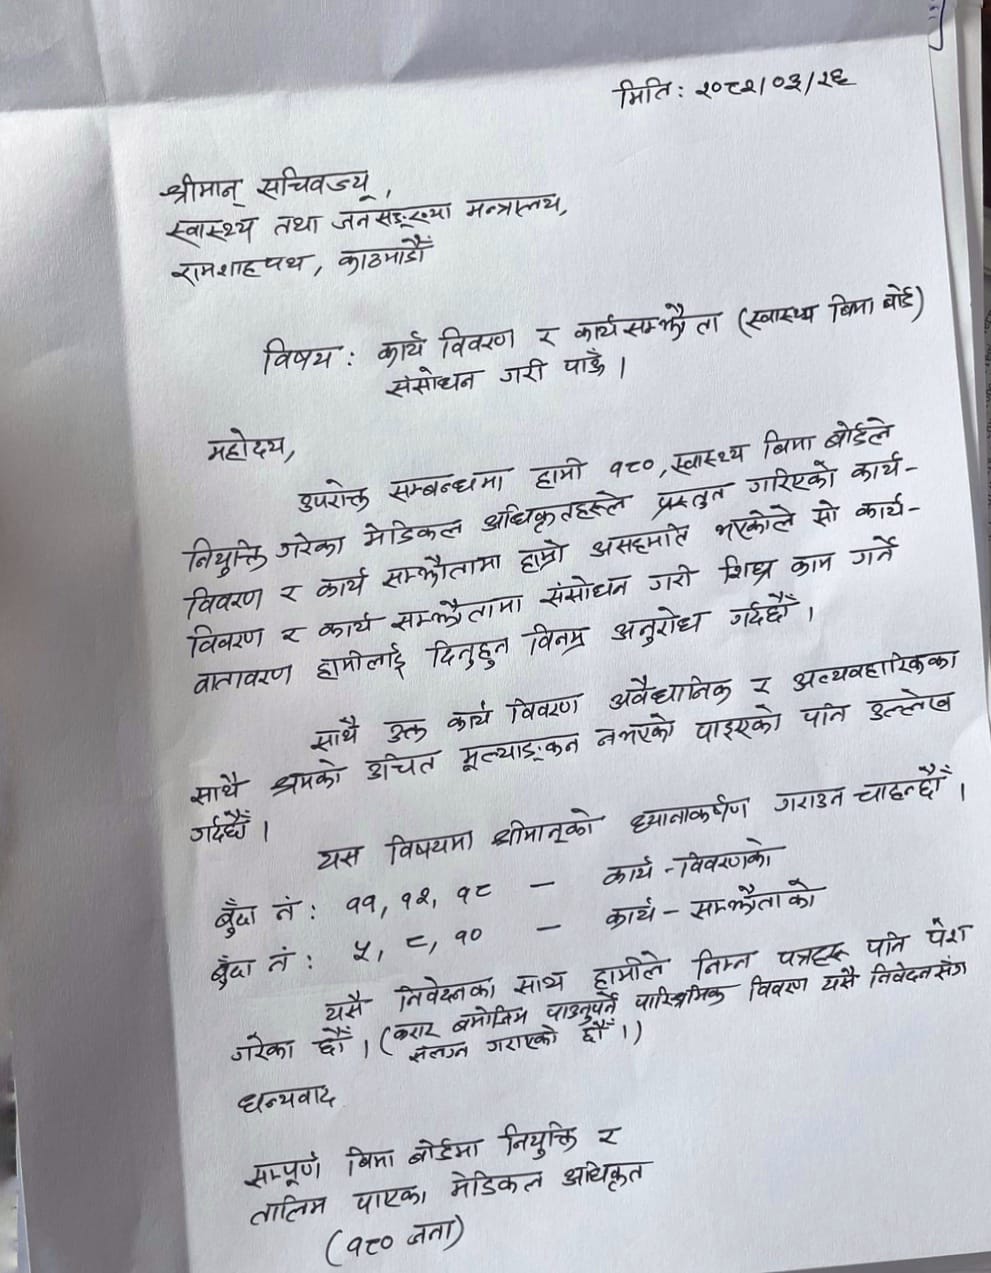 मिति: २०८२/०३/२६
श्रीमान् सचिवज्यू,
स्वास्थ्य तथा जनसङ्ख्या मन्त्रालय,
रामशाहपथ, काठमाडौं
विषय: कार्य विवरण र कार्य सम्झौता (स्वास्थ्य बिमा बोर्ड)
संसोधन गरी पाऊँ ।
महोदय,
उपरोक्त सम्बन्धमा हामी १८०, स्वास्थ्य बिमा बोर्डले
नियुक्ति गरेका मेडिकल अधिकृतहरूले प्रस्तुत गरिएको कार्य-
विवरण र कार्य सम्झौतामा हाम्रो असहमति भएकोले सो कार्य-
विवरण र कार्य सम्झौतामा संसोधन गरी शिघ्र काम गर्ने
वातावरण हामीलाई दिनुहुन विनम्र अनुरोध गर्दछौं ।
साथै उक्त कार्य विवरण अवैधानिक र अव्यवहारिकका
साथै श्रमको उचित मूल्याङ्कन नभएको पाइएको पनि उल्लेख
गर्दछौं ।
यस विषयमा श्रीमान्को ध्यानाकर्षण गराउन चाहन्छौं ।
बुँदा नं: ११, १२, १८ - कार्य-विवरणको
बुँदा नं: ५, ८, १० - कार्य-सम्झौताको
यसै निवेदनका साथ हामीले निम्न पत्रहरू पनि पेश
गरेका छौं । (करार बमोजिम पाउनुपर्ने पारिश्रमिक विवरण यसै निवेदनसँग
संलग्न गराएको छौं ।)
धन्यवाद
सम्पूर्ण बिमा बोर्डमा नियुक्ति र
तालिम पाएका मेडिकल अधिकृत
(१८० जना)